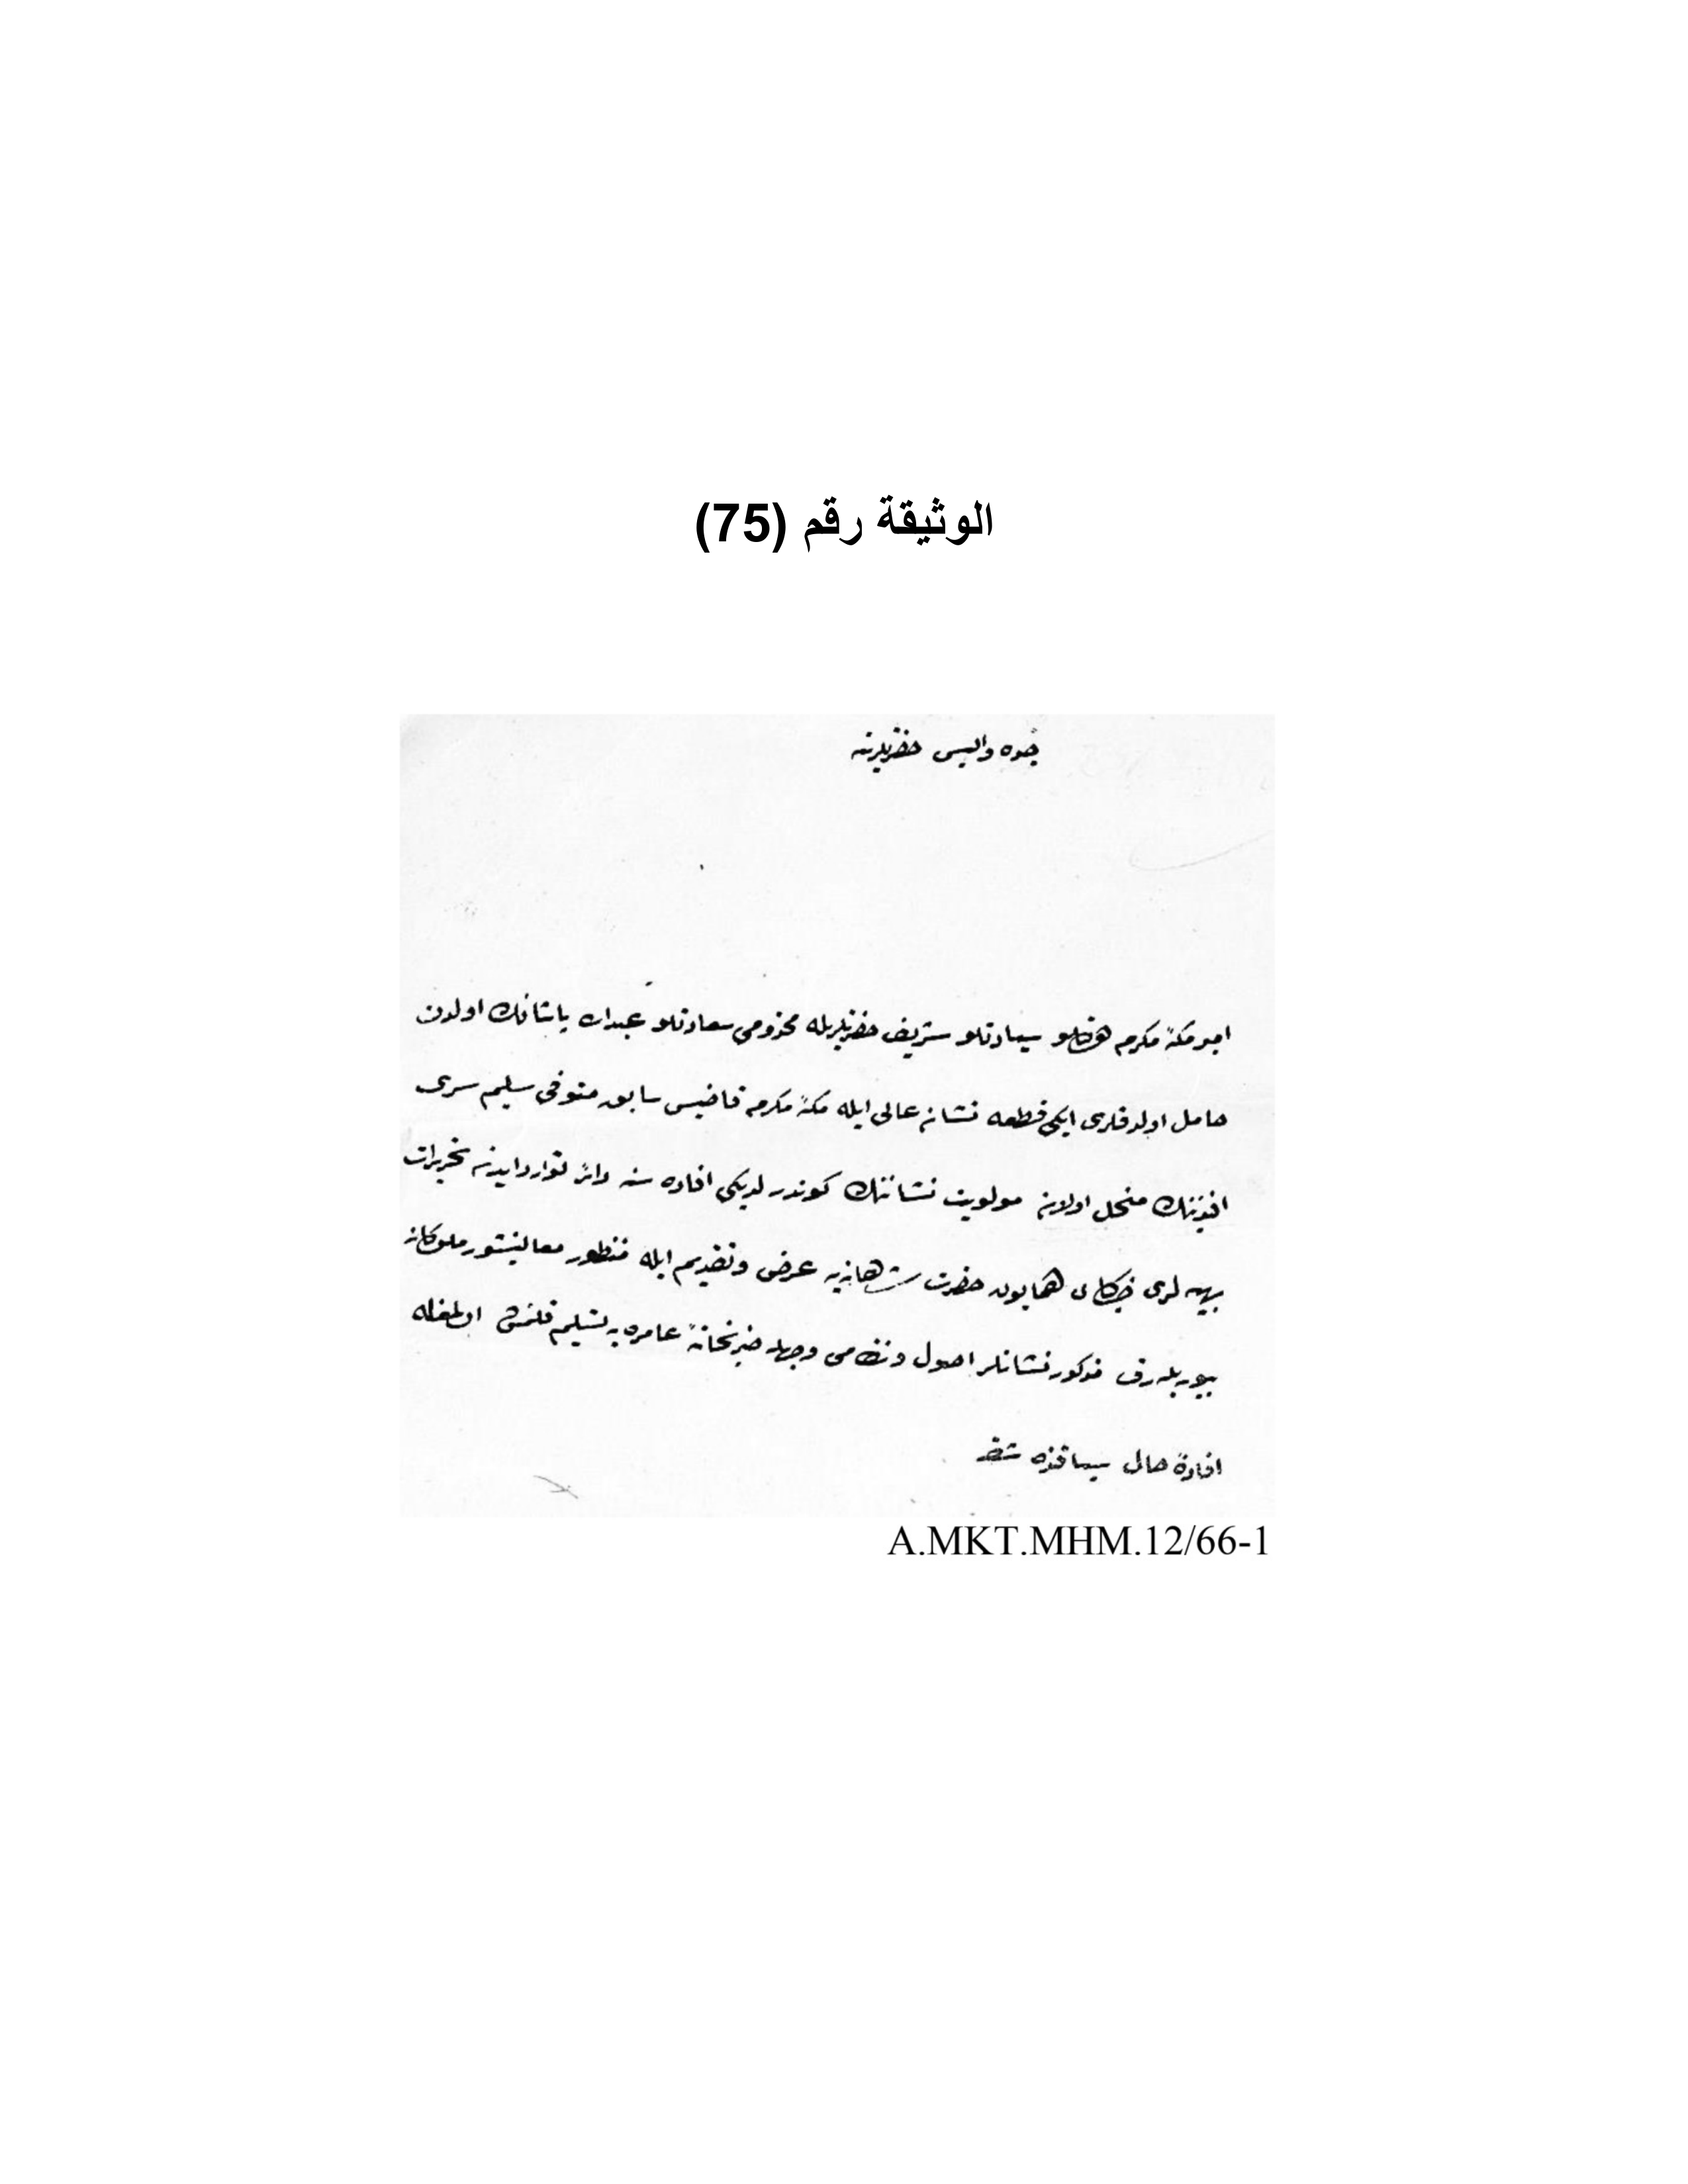 الوثيقة رقم (75)
جده واليسى حضرتلرينه
امير مكۀ مكرمه سيادتلو شريف حضرتلريله مخدومى سعادتلو عبدالله پاشانك اولدن
حامل اولدقلرى ايكى قطعه نشان عالى ايله مكۀ مكرمه قاضيسى سابق متوفى سليم سرى
افندينك منحل اولان مولويت نشاننك كوندرلديكى افاده سنه دائر توارد ايدن تحريرات
بهيه لرى خاكپاى همايون حضرت شاهانه يه عرض وتقديم ايله منظور معالينشور ملوكانه
بيوريله رق مذكور نشانلر اصول ونظامى وجهله ضربخانۀ عامره يه تسليم قلنمش اولمغله
افادۀ حال سياقنده شقه
A.MKT.MHM.12/66-1